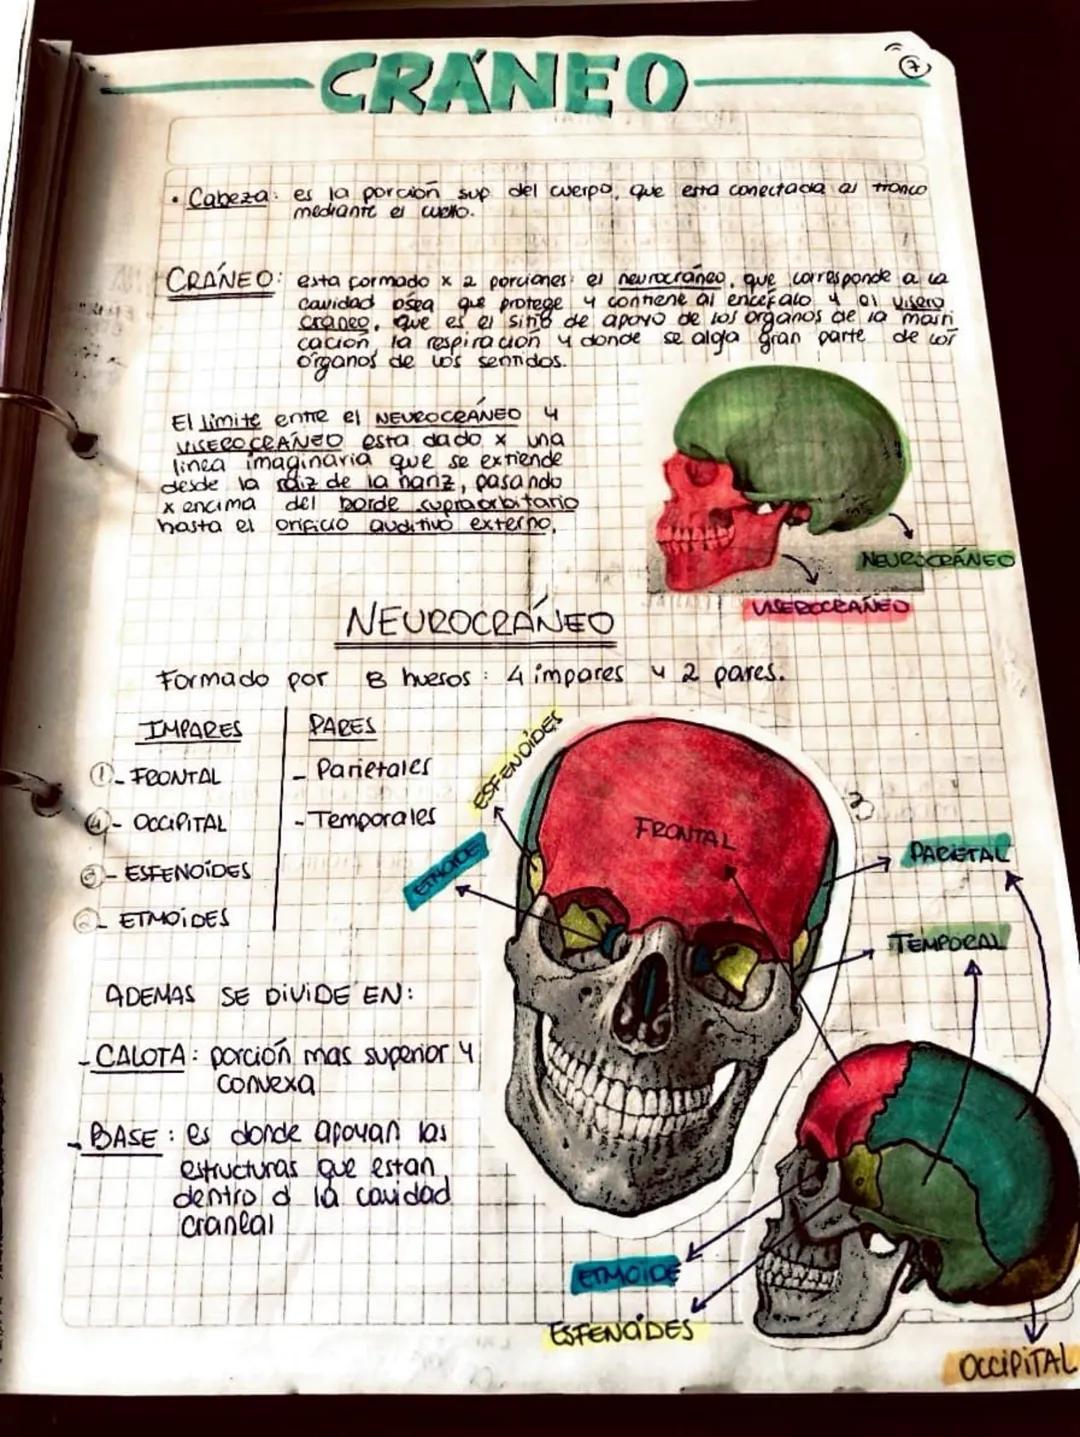 CRÁNEO
7
• Cabeza: es la porción sup del cuerpo, que esta conectada al tronco
mediante el cuello.
CRÁNEO: esta formado x 2 porciones: el neurocráneo, que corresponde a la
cavidad osea que protege y contiene al encéfalo y al visero
craneo, que es el sitio de apoyo de los organos de la masti
cación, la respiración y donde se aloja gran parte de los
órganos de los sentidos.
El límite entre el NEUROCRÁNEO y
VISEROCRÁNEO esta dado x una
línea imaginaria que se extiende
desde la raíz de la nariz, pasando
x encima del borde supraorbitario
hasta el orificio auditivo externo.
NEUROCRÁNEO
VISEROCRAÑEO
NEUROCRÁNEO
Formado por 8 huesos: 4 impares y 2 pares.
IMPARES
PARES
1 - FRONTAL
- Parietales
4 - OCCIPITAL
- Temporales
3 - ESFENOÍDES
2 - ETMOÍDES
ESFENOÍDES
ETMOIDE
FRONTAL
PARIETAL
TEMPORAL
ADEMAS SE DIVIDE EN:
- CALOTA: porción mas superior y
convexa
- BASE: es donde apoyan las
estructuras que estan
dentro d la cavidad
craneal
ETMOIDE
ESFENOÍDES
OCCIPITAL